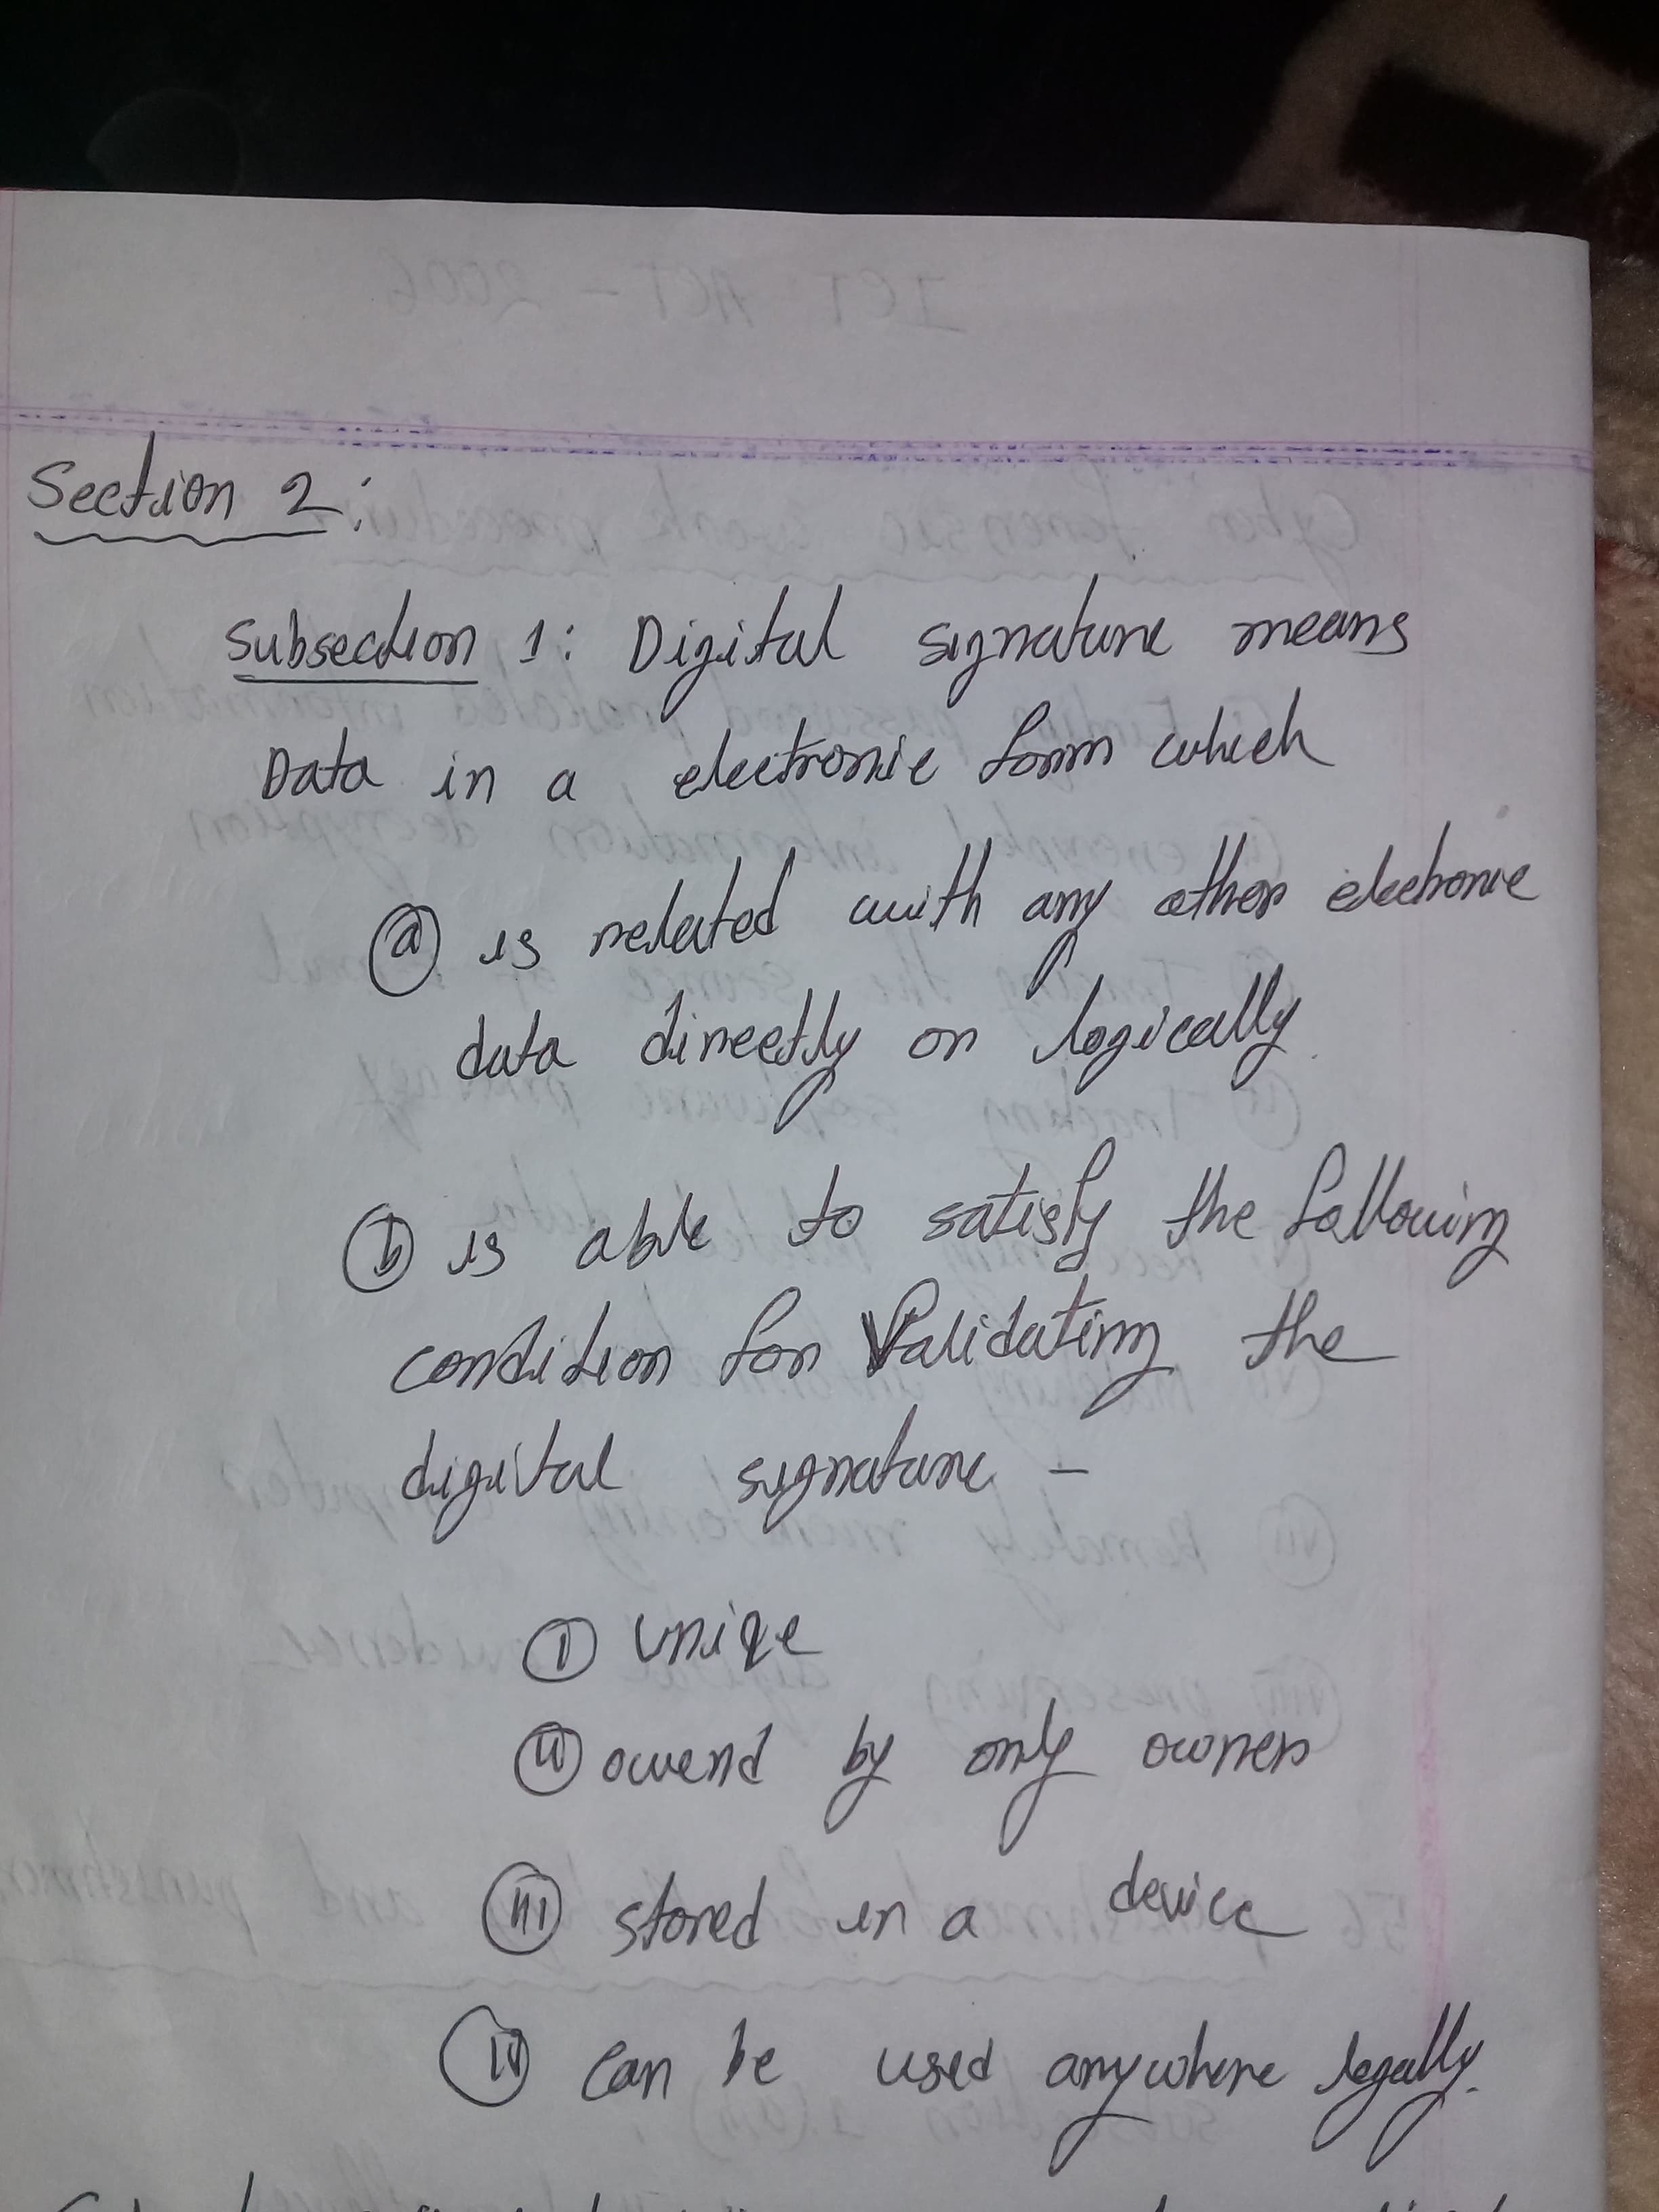 Section 2:
Subsection 1: Digital signature means
Data in a electronic form which
(a) is related with any other electronic
data directly or logically.
(b) is able to satisfy the following
condition for Validating the
digital signature –
(i) uniqe
(ii) owend by only owner
(iii) stored in a device
(iv) can be used anywhere legally.